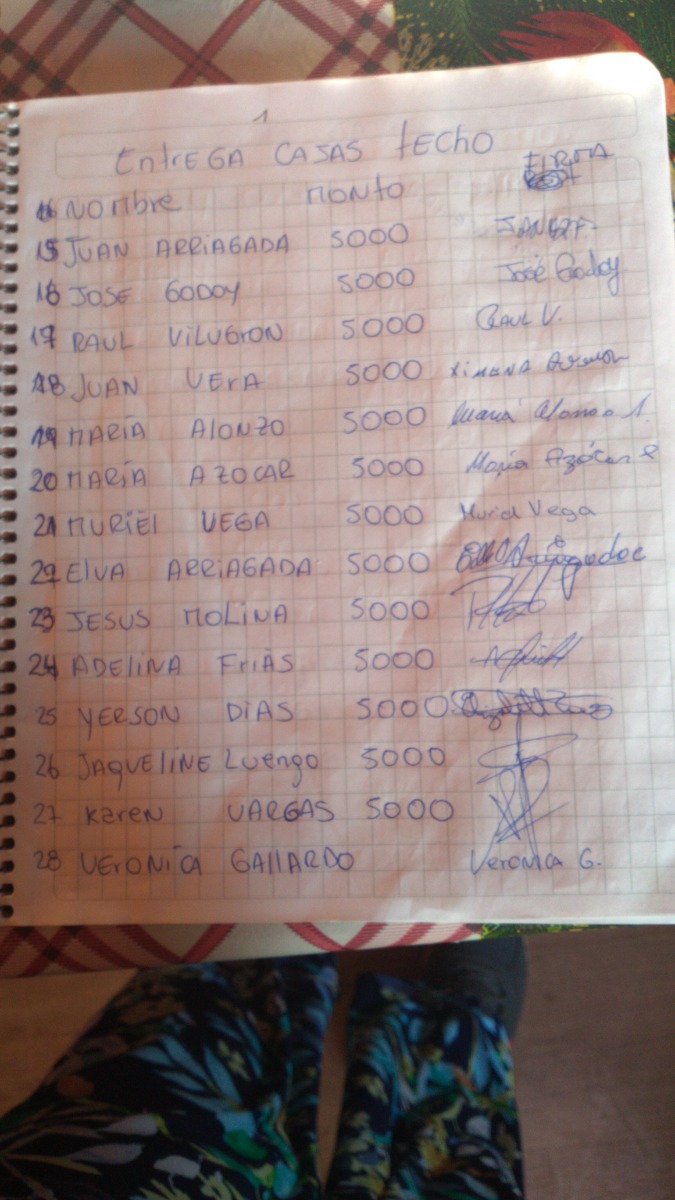 1
EntrEGA CASAS tECHO
Nombre MONTO FIRMA
15 JUAN ARRIAGADA 5000
16 JOSE GODOY 5000 José Godoy
17 RAUL VILUGRON 5000 RAUL V.
18 JUAN VERA 5000 XIMENA
19 MARÍA ALONZO 5000 María Alonso
20 MARÍA AZOCAR 5000 María Azócar
21 MURIEL VEGA 5000 Muriel Vega
22 ELVA ARRIAGADA 5000 Arriagada
23 JESUS MOLINA 5000
24 ADELINA FRIAS 5000
25 YERSON DIAS 5000
26 JAQUELINE Luengo 5000
27 Karen VARGAS 5000
28 VERONICA GALLARDO Veronica G.